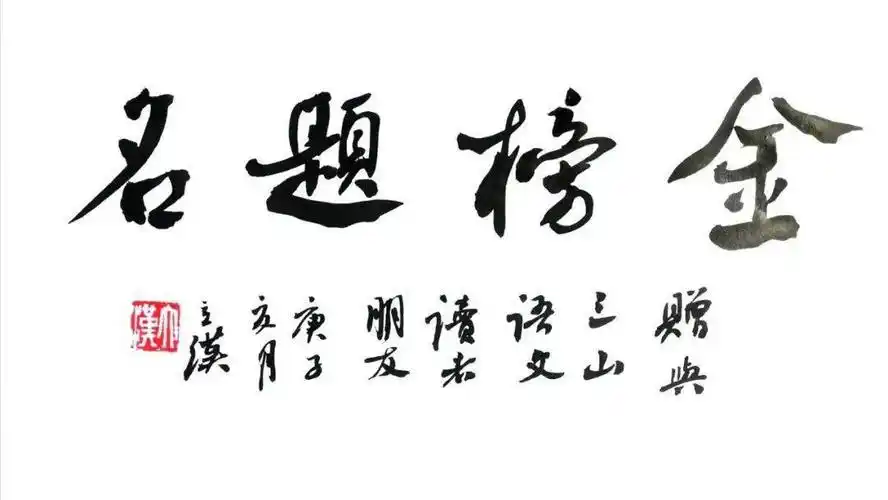 金榜題名
贈與
三山
語文
讀者
朋友
庚子
亥月
立漢